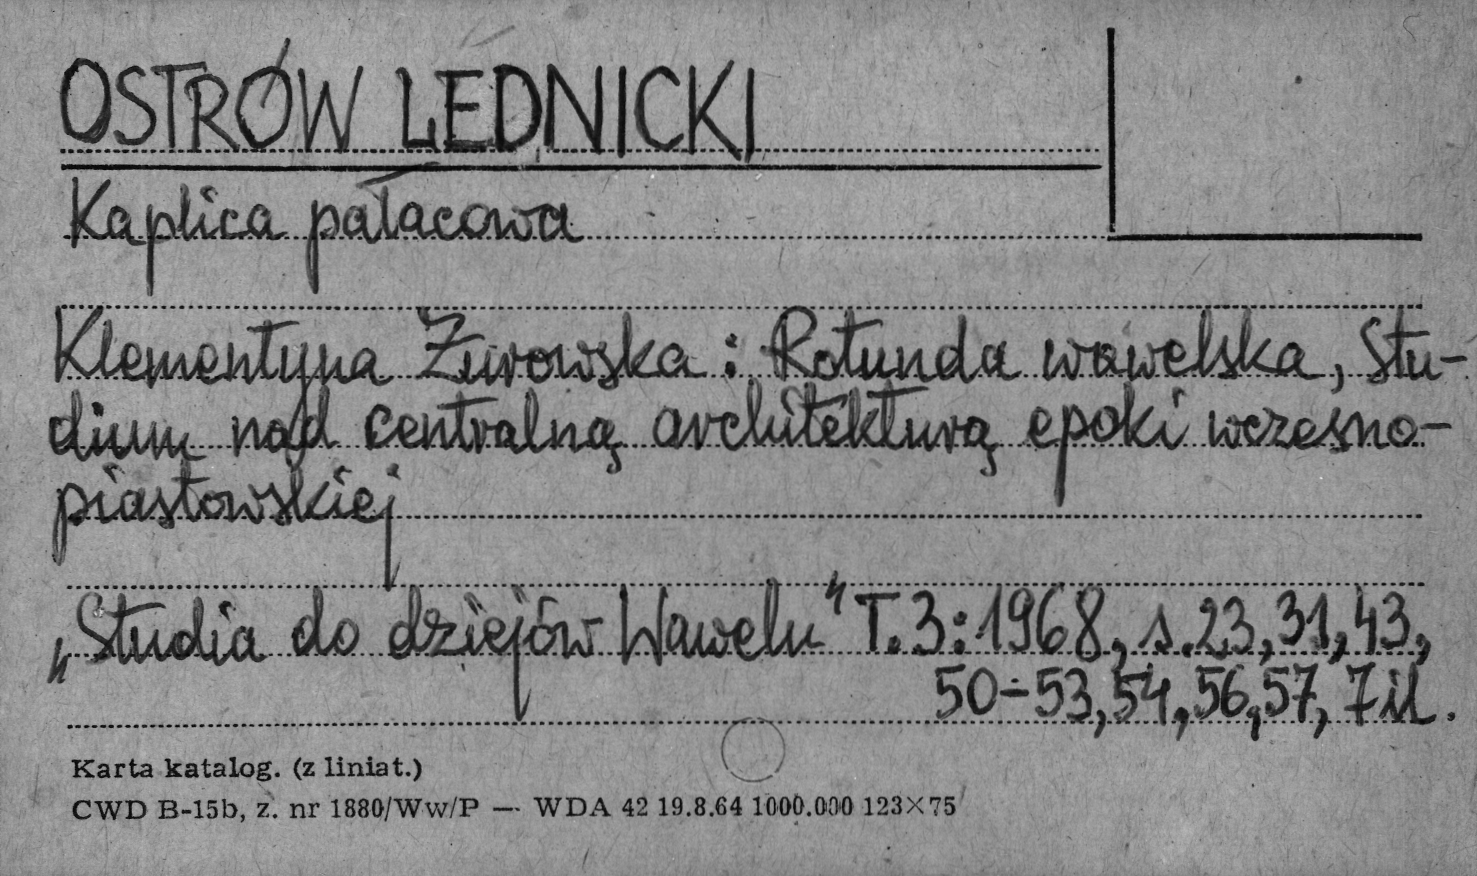 OSTRÓW LEDNICKI
Kaplica pałacowa
Klementyna Żurowska : Rotunda wawelska, Stu-
dium nad centralną architekturą epoki wczesno-
piastowskiej
„Studia do dziejów Wawelu" T.3:1968, s.23,31,43,
50÷53,54,56,57, 7il.
Karta katalog. (z liniat.)
CWD B-15b, z. nr 1880/Ww/P — WDA 42 19.8.64 1000.000 123×75